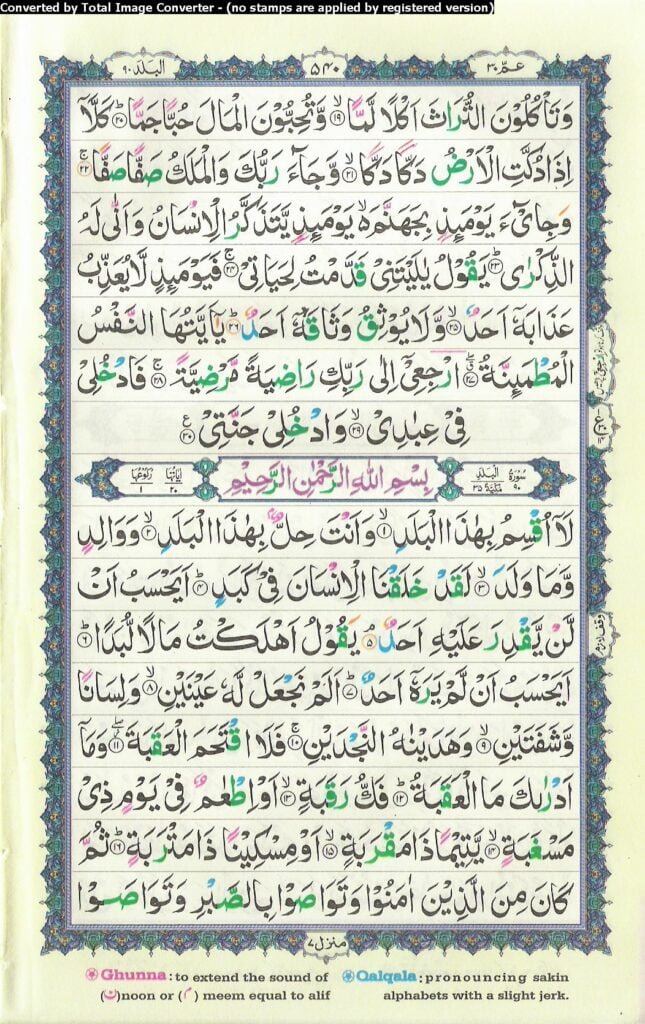 Converted by Total Image Converter - (no stamps are applied by registered version)
عـمّ ۳۰
۵۴۰
البلد ۹۰
وَتَاۡكُلُوۡنَ التُّرَاثَ اَكۡلًا لَّمًّا ۙ‏﴿۱۹﴾ وَّتُحِبُّوۡنَ الۡمَالَ حُبًّا جَمًّا ؕ‏﴿۲۰﴾ كَلَّاۤ
اِذَا دُكَّتِ الۡاَرۡضُ دَكًّا دَكًّا ۙ‏﴿۲۱﴾ وَّجَآءَ رَبُّكَ وَالۡمَلَكُ صَفًّا صَفًّا ۚ‏﴿۲۲﴾
وَجِاىْٓءَ يَوۡمَٮِٕذٍۢ بِجَهَنَّمَ ۙ يَوۡمَٮِٕذٍ يَّتَذَكَّرُ الۡاِنۡسَانُ وَاَنّٰى لَهُ
الذِّكۡرٰى ؕ‏﴿۲۳﴾ يَقُوۡلُ يٰلَيۡتَنِىۡ قَدَّمۡتُ لِحَيَاتِىۡ ۚ‏﴿۲۴﴾ فَيَوۡمَٮِٕذٍ لَّا يُعَذِّبُ
عَذَابَهٗۤ اَحَدٌ ۙ‏﴿۲۵﴾ وَّلَا يُوۡثِقُ وَثَاقَهٗۤ اَحَدٌ ؕ‏﴿۲۶﴾ يٰۤاَيَّتُهَا النَّفۡسُ
الۡمُطۡمَٮِٕنَّةُ ۖ‏﴿۲۷﴾ ارۡجِعِىۡۤ اِلٰى رَبِّكِ رَاضِيَةً مَّرۡضِيَّةً ۚ‏﴿۲۸﴾ فَادۡخُلِىۡ
فِىۡ عِبٰدِىۙ‏﴿۲۹﴾ وَادۡخُلِىۡ جَنَّتِىۡ‏﴿۳۰﴾
سُوۡرَةُ الۡبَلَد ۹۰ مَكِّيَّةٌ ۳۵
بِسۡمِ اللهِ الرَّحۡمٰنِ الرَّحِيۡمِ
اٰيَاتُهَا ۲۰ رُكُوۡعُهَا ۱
لَاۤ اُقۡسِمُ بِهٰذَا الۡبَلَدِ ۙ‏﴿۱﴾ وَاَنۡتَ حِلٌّۢ بِهٰذَا الۡبَلَدِ ۙ‏﴿۲﴾ وَوَالِدٍ
وَّمَا وَلَدَ ۙ‏﴿۳﴾ لَقَدۡ خَلَقۡنَا الۡاِنۡسَانَ فِىۡ كَبَدٍؕ‏﴿۴﴾ اَيَحۡسَبُ اَنۡ
لَّنۡ يَّقۡدِرَ عَلَيۡهِ اَحَدٌ‌ ۘ‏﴿۵﴾ يَقُوۡلُ اَهۡلَكۡتُ مَالًا لُّبَدًا ؕ‏﴿۶﴾
اَيَحۡسَبُ اَنۡ لَّمۡ يَرَهٗۤ اَحَدٌ ؕ‏﴿۷﴾ اَلَمۡ نَجۡعَلۡ لَّهٗ عَيۡنَيۡنِ ۙ‏﴿۸﴾ وَلِسَانًا
وَّشَفَتَيۡنِ ۙ‏﴿۹﴾ وَهَدَيۡنٰهُ النَّجۡدَيۡنِ‌ ۚ‏﴿۱۰﴾ فَلَا اقۡتَحَمَ الۡعَقَبَةَ ۖ‏﴿۱۱﴾ وَمَاۤ
اَدۡرٰٮكَ مَا الۡعَقَبَةُ ؕ‏﴿۱۲﴾ فَكُّ رَقَبَةٍ ۙ‏﴿۱۳﴾ اَوۡ اِطۡعٰمٌ فِىۡ يَوۡمٍ ذِىۡ
مَسۡغَبَةٍ ۙ‏﴿۱۴﴾ يَّتِيۡمًا ذَا مَقۡرَبَةٍ ۙ‏﴿۱۵﴾ اَوۡ مِسۡكِيۡنًا ذَا مَتۡرَبَةٍ ؕ‏﴿۱۶﴾ ثُمَّ
كَانَ مِنَ الَّذِيۡنَ اٰمَنُوۡا وَتَوَاصَوۡا بِالصَّبۡرِ وَتَوَاصَوۡا
منزل ۷
Ghunna: to extend the sound of
(ن) noon or (م) meem equal to alif
Qalqala: pronouncing sakin
alphabets with a slight jerk.